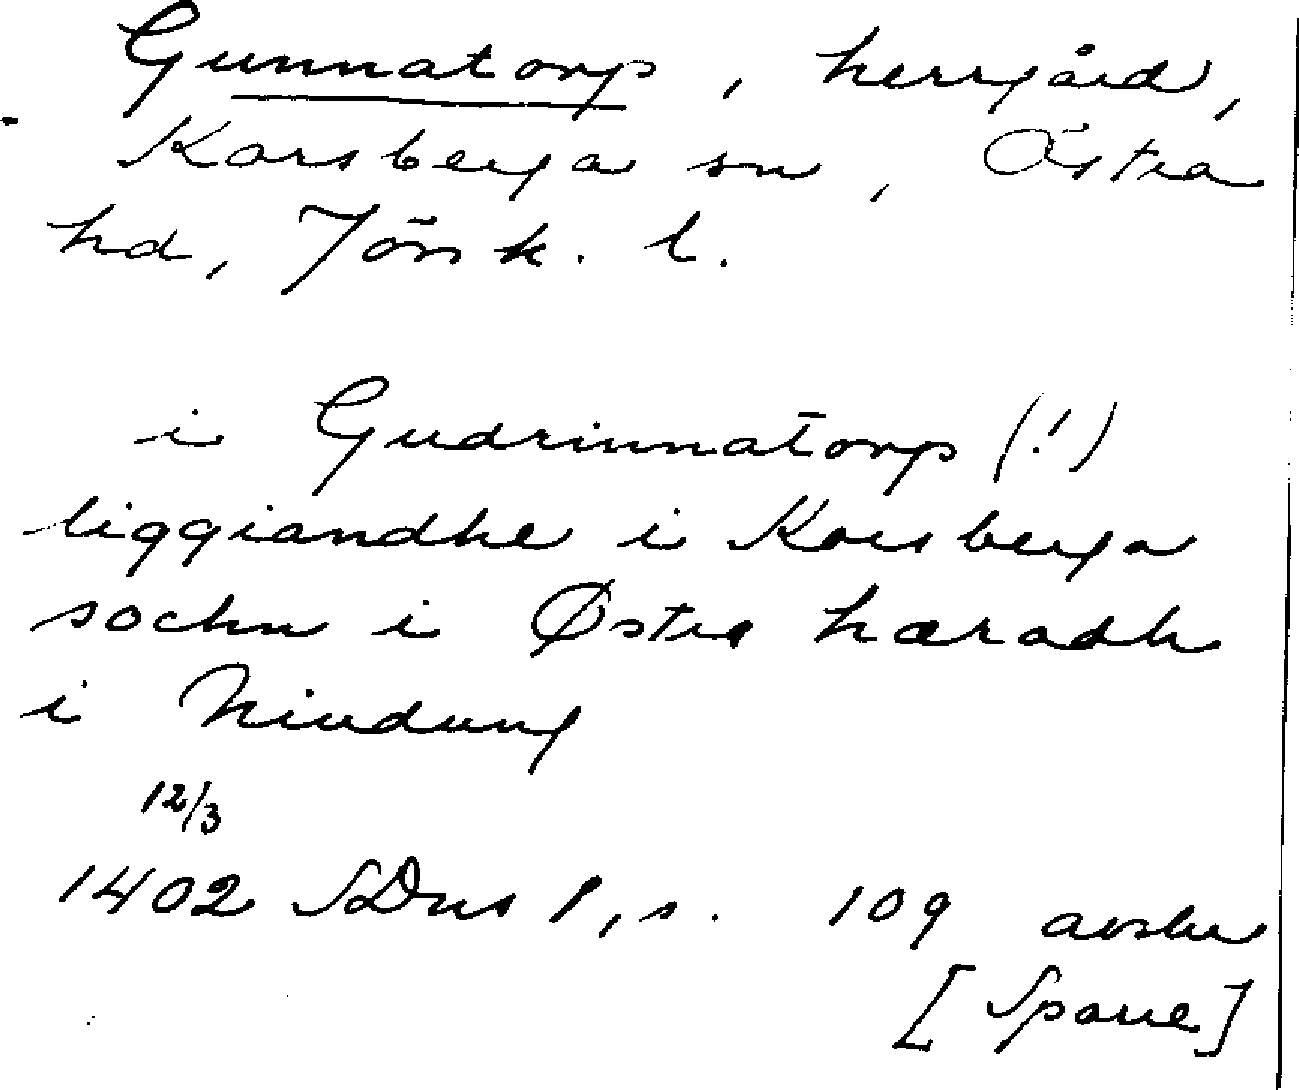 Gunnatorp, herrgård,
Korsberga sn, Östra
hd, Jönk. l.
i Gudrinnatorp (!)
liggiandhe i Korsberga
sochn i Østra hæradh
i Niudung
12/3
1402 SDns 1, s. 109 avskr
[Sparre]